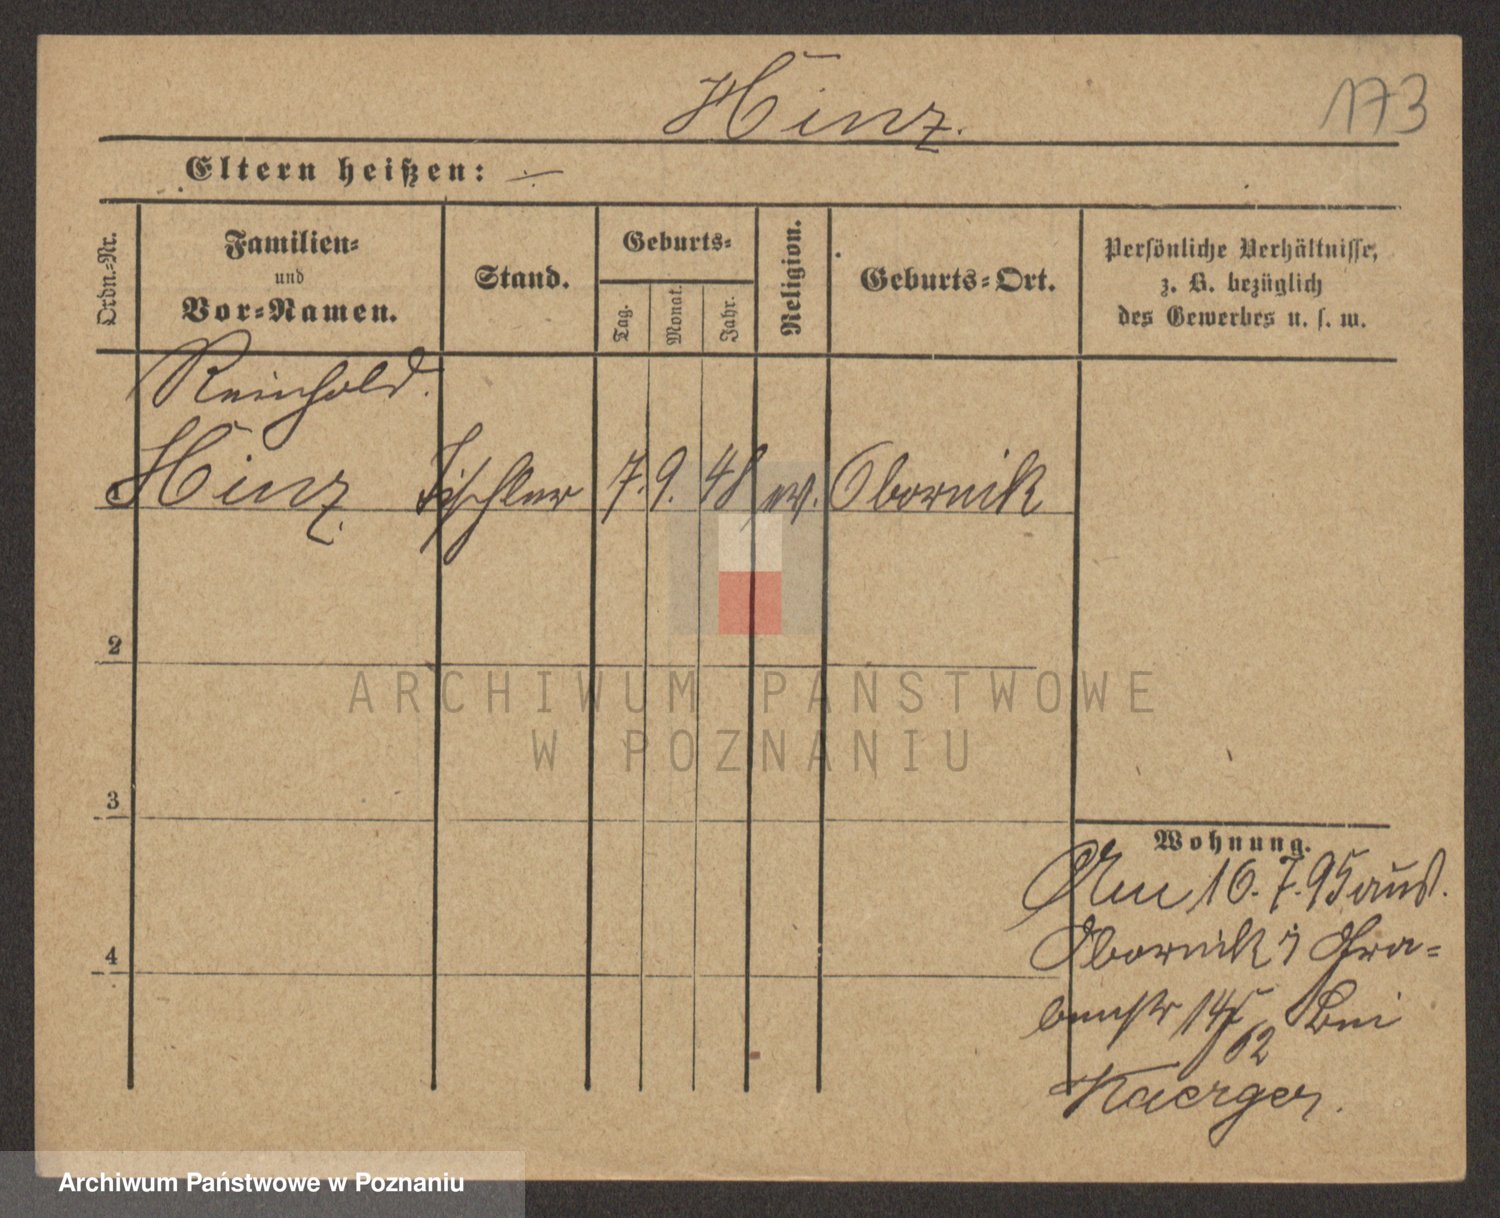 Hinz.
173
Eltern heißen: ÷
Ordn.-Nr.
Familien-
und
Vor-Namen.
Stand.
Geburts-
Tag.
Monat.
Jahr.
Religion.
Geburts-Ort.
Persönliche Verhältnisse,
z. B. bezüglich
des Gewerbes u. s. w.
Reinhold.
Hinz. Tischler 7. 9. 48 ev. Obornik
2
3
4
ARCHIWUM PAŃSTWOWE
W POZNANIU
Wohnung.
Am 16.7.95 aus.
Obornik Gra-
benstr 14 bei
62
Kaerger.
Archiwum Państwowe w Poznaniu